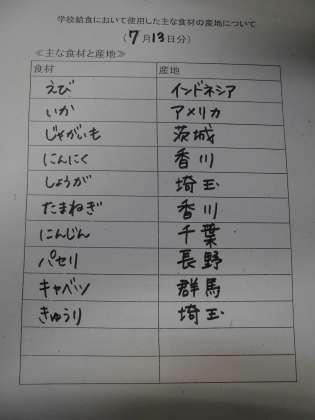 学校給食において使用した主な食材の産地について
(7月13日分)
≪主な食材と産地≫
食材 産地
えび インドネシア
いか アメリカ
じゃがいも 茨城
にんにく 香川
しょうが 埼玉
たまねぎ 香川
にんじん 千葉
パセリ 長野
キャベツ 群馬
きゅうり 埼玉